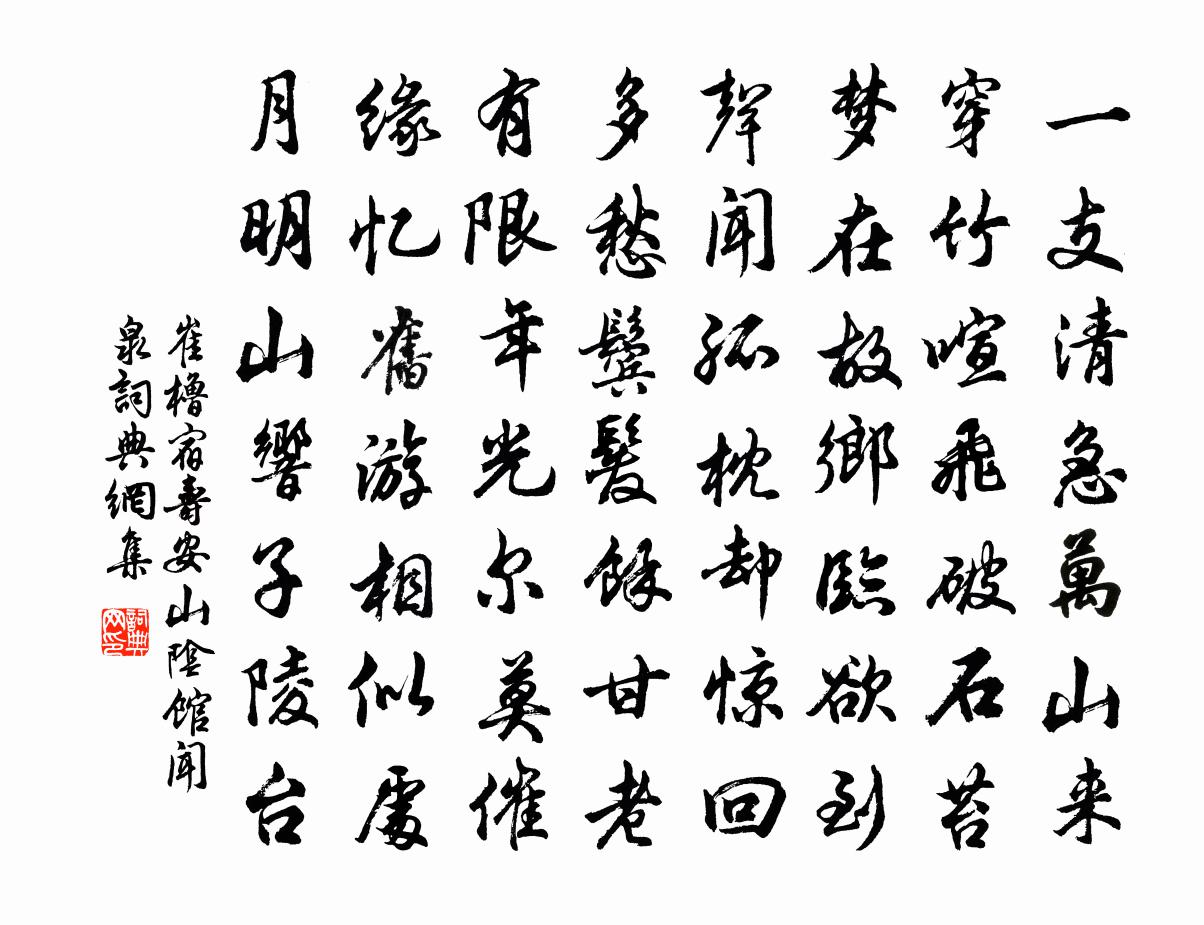 一支清急萬山来
穿竹喧飛破石苔
梦在故鄉臨欲到
聲聞孤枕却惊回
多愁鬓髮餘甘老
有限年光尔莫催
缘忆舊游相似處
月明山響子陵台
崔櫓宿壽安山陰館聞
泉詞典網集
詞典
网印